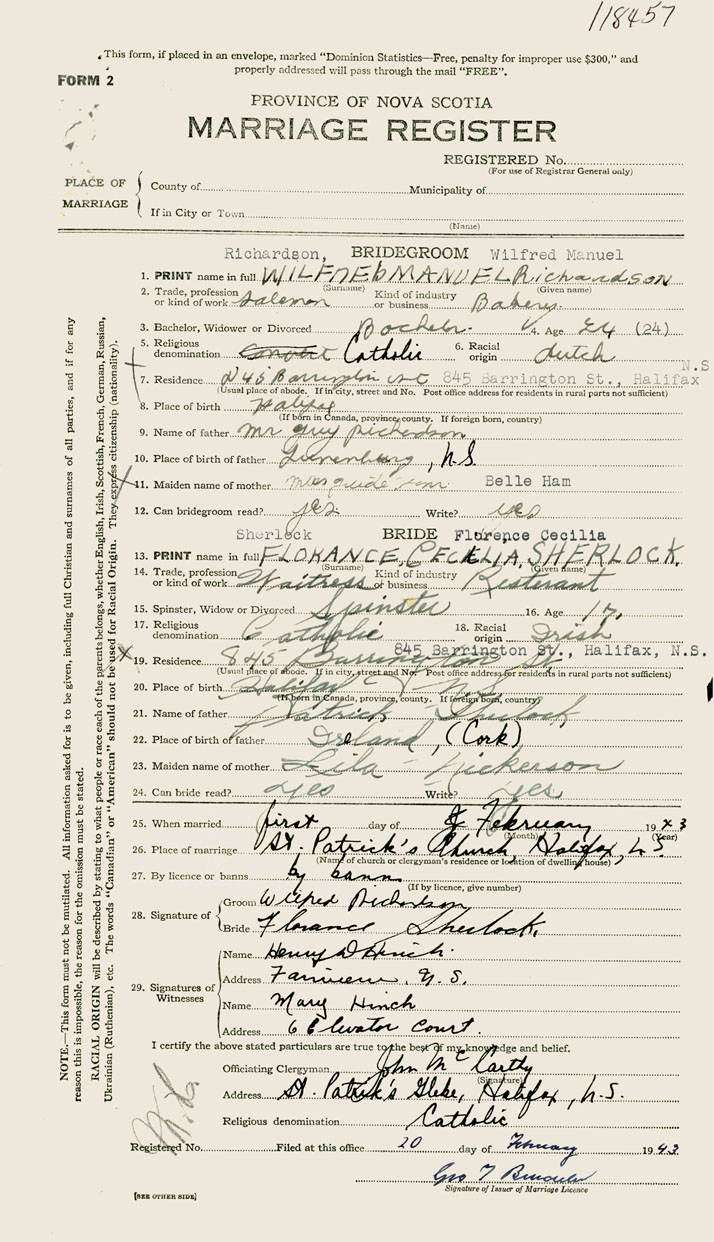 118457
This form, if placed in an envelope, marked "Dominion Statistics—Free, penalty for improper use $300," and
properly addressed will pass through the mail "FREE".
FORM 2
PROVINCE OF NOVA SCOTIA
MARRIAGE REGISTER
REGISTERED No.
(For use of Registrar General only)
PLACE OF MARRIAGE
County of Municipality of
If in City or Town
(Name)
Richardson, BRIDEGROOM Wilfred Manuel
1. PRINT name in full WILFRED MANUEL Richardson
(Surname) (Given name)
2. Trade, profession or kind of work Salemon Kind of industry or business Bakery
3. Bachelor, Widower or Divorced Bachelor 4. Age 24 (24)
5. Religious denomination Catholic 6. Racial origin dutch
N.S
7. Residence 845 Barrington St., Halifax
(Usual place of abode. If in city, street and No. Post office address for residents in rural parts not sufficient)
8. Place of birth Halifax
(If born in Canada, province, county. If foreign born, country)
9. Name of father Mr guy richardson
10. Place of birth of father Lunenburg, N.S.
11. Maiden name of mother Belle Ham
12. Can bridegroom read? yes Write? yes
Sherlock BRIDE Florence Cecilia
13. PRINT name in full FLORANCE, CECELIA, SHERLOCK.
(Surname) (Given name)
14. Trade, profession or kind of work Waitress Kind of industry or business Resterant
15. Spinster, Widow or Divorced Spinster 16. Age 17.
17. Religious denomination Catholic 18. Racial origin Irish
845 Barrington St., Halifax, N.S.
19. Residence 845 Barrington St.
(Usual place of abode. If in city, street and No. Post office address for residents in rural parts not sufficient)
20. Place of birth Halifax N.S.
(If born in Canada, province, county. If foreign born, country)
21. Name of father Patrick Sherlock
22. Place of birth of father Ireland, (Cork)
23. Maiden name of mother Lila Nickerson
24. Can bride read? yes Write? yes
25. When married first day of February 1943
(Month) (Year)
26. Place of marriage St. Patrick's Church, Halifax, N.S.
(Name of church or clergyman's residence or location of dwelling house)
27. By licence or banns by bann
(If by licence, give number)
28. Signature of Groom Wilfred Richardson
Bride Florance Sherlock.
29. Signatures of Witnesses
Name Henry D Hinch.
Address Fairview, N.S.
Name Mary Hinch
Address 6 Elevator Court.
I certify the above stated particulars are true to the best of my knowledge and belief.
Officiating Clergyman John McCarthy
(Signature)
Address St. Patrick's Glebe, Halifax, N.S.
Religious denomination Catholic
Registered No. Filed at this office 20 day of February 1943
Signature of Issuer of Marriage Licence
[SEE OTHER SIDE]
NOTE.—This form must not be mutilated. All information asked for is to be given, including full Christian and surnames of all parties, and if for any
reason this is impossible, the reason for the omission must be stated.
RACIAL ORIGIN will be described by stating to what people or race each of the parents belongs, whether English, Irish, Scottish, French, German, Russian,
Ukrainian (Ruthenian), etc. The words "Canadian" or "American" should not be used for Racial Origin. They express citizenship (nationality).